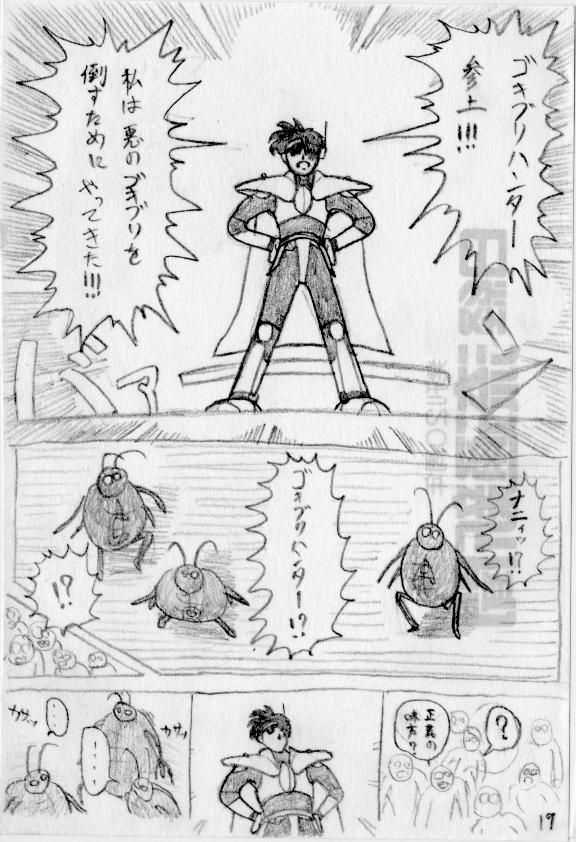 ゴキブリハンター
参上!!!
私は悪のゴキブリを
倒すために やってきた!!!
ナニィッ!?
ゴキブリハンター!?
!?
?
正義の
味方?
・・・
・・・
カサッ
カサッ
19